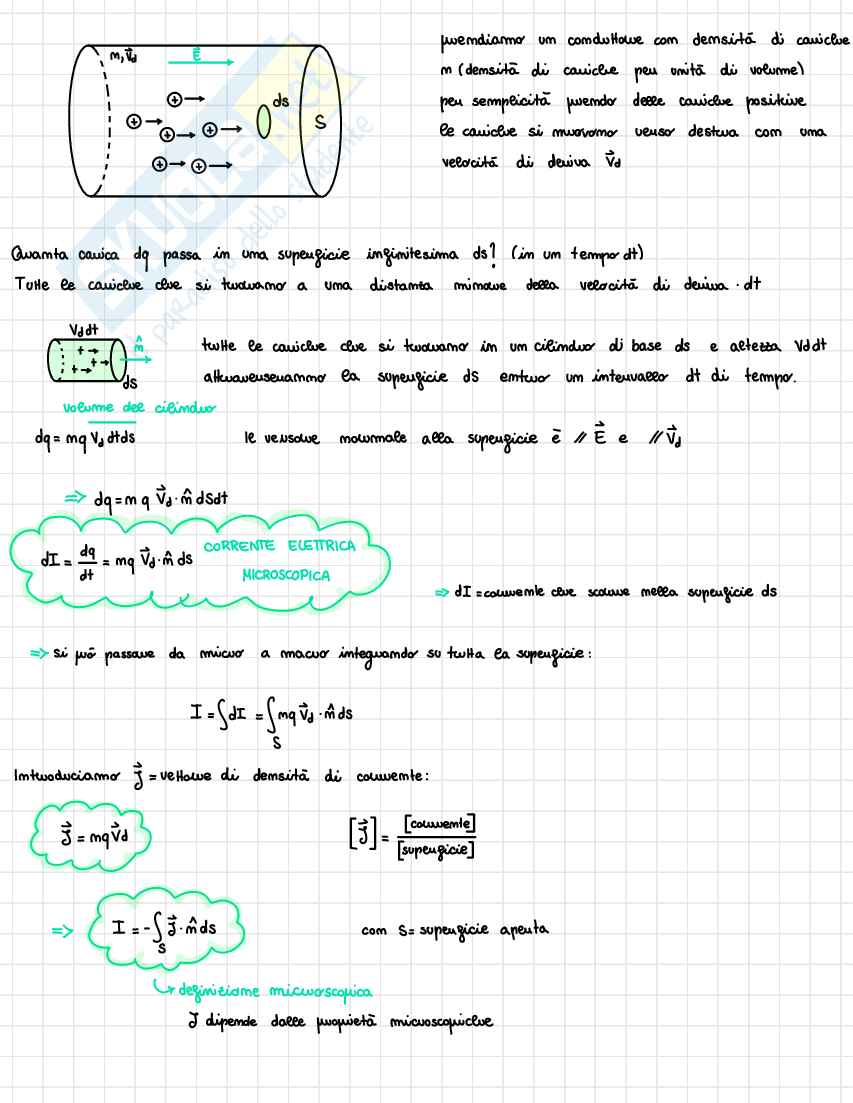 n, V⃗d
E⃗
ds
S
prendiamo un conduttore con densità di cariche
n (densità di cariche per unità di volume)
per semplicità prendo delle cariche positive
le cariche si muovono verso destra con una
velocità di deriva V⃗d
SKUOLA.net
paradiso dello studente
Quanta carica dq passa in una superficie infinitesima ds? (in un tempo dt)
Tutte le cariche che si trovano a una distanza minore della velocità di deriva · dt
Vd dt
n̂
ds
tutte le cariche che si trovano in un cilindro di base ds e altezza Vd dt
attraverseranno la superficie ds entro un intervallo dt di tempo.
volume del cilindro
dq = nq Vd dt ds
le versore normale alla superficie è // E⃗ e // V⃗d
⇒ dq = n q V⃗d · n̂ dSdt
dI = dq/dt = nq V⃗d · n̂ ds CORRENTE ELETTRICA
MICROSCOPICA
⇒ dI = corrente che scorre nella superficie ds
⇒ si può passare da micro a macro integrando su tutta la superficie:
I = ∫dI = ∫S nq V⃗d · n̂ ds
Introduciamo J⃗ = vettore di densità di corrente:
J⃗ = nq V⃗d
[J⃗] = [corrente]/[superficie]
⇒ I = -∫S J⃗ · n̂ ds
con S = superficie aperta
↳ definizione microscopica
J dipende dalle proprietà microscopiche